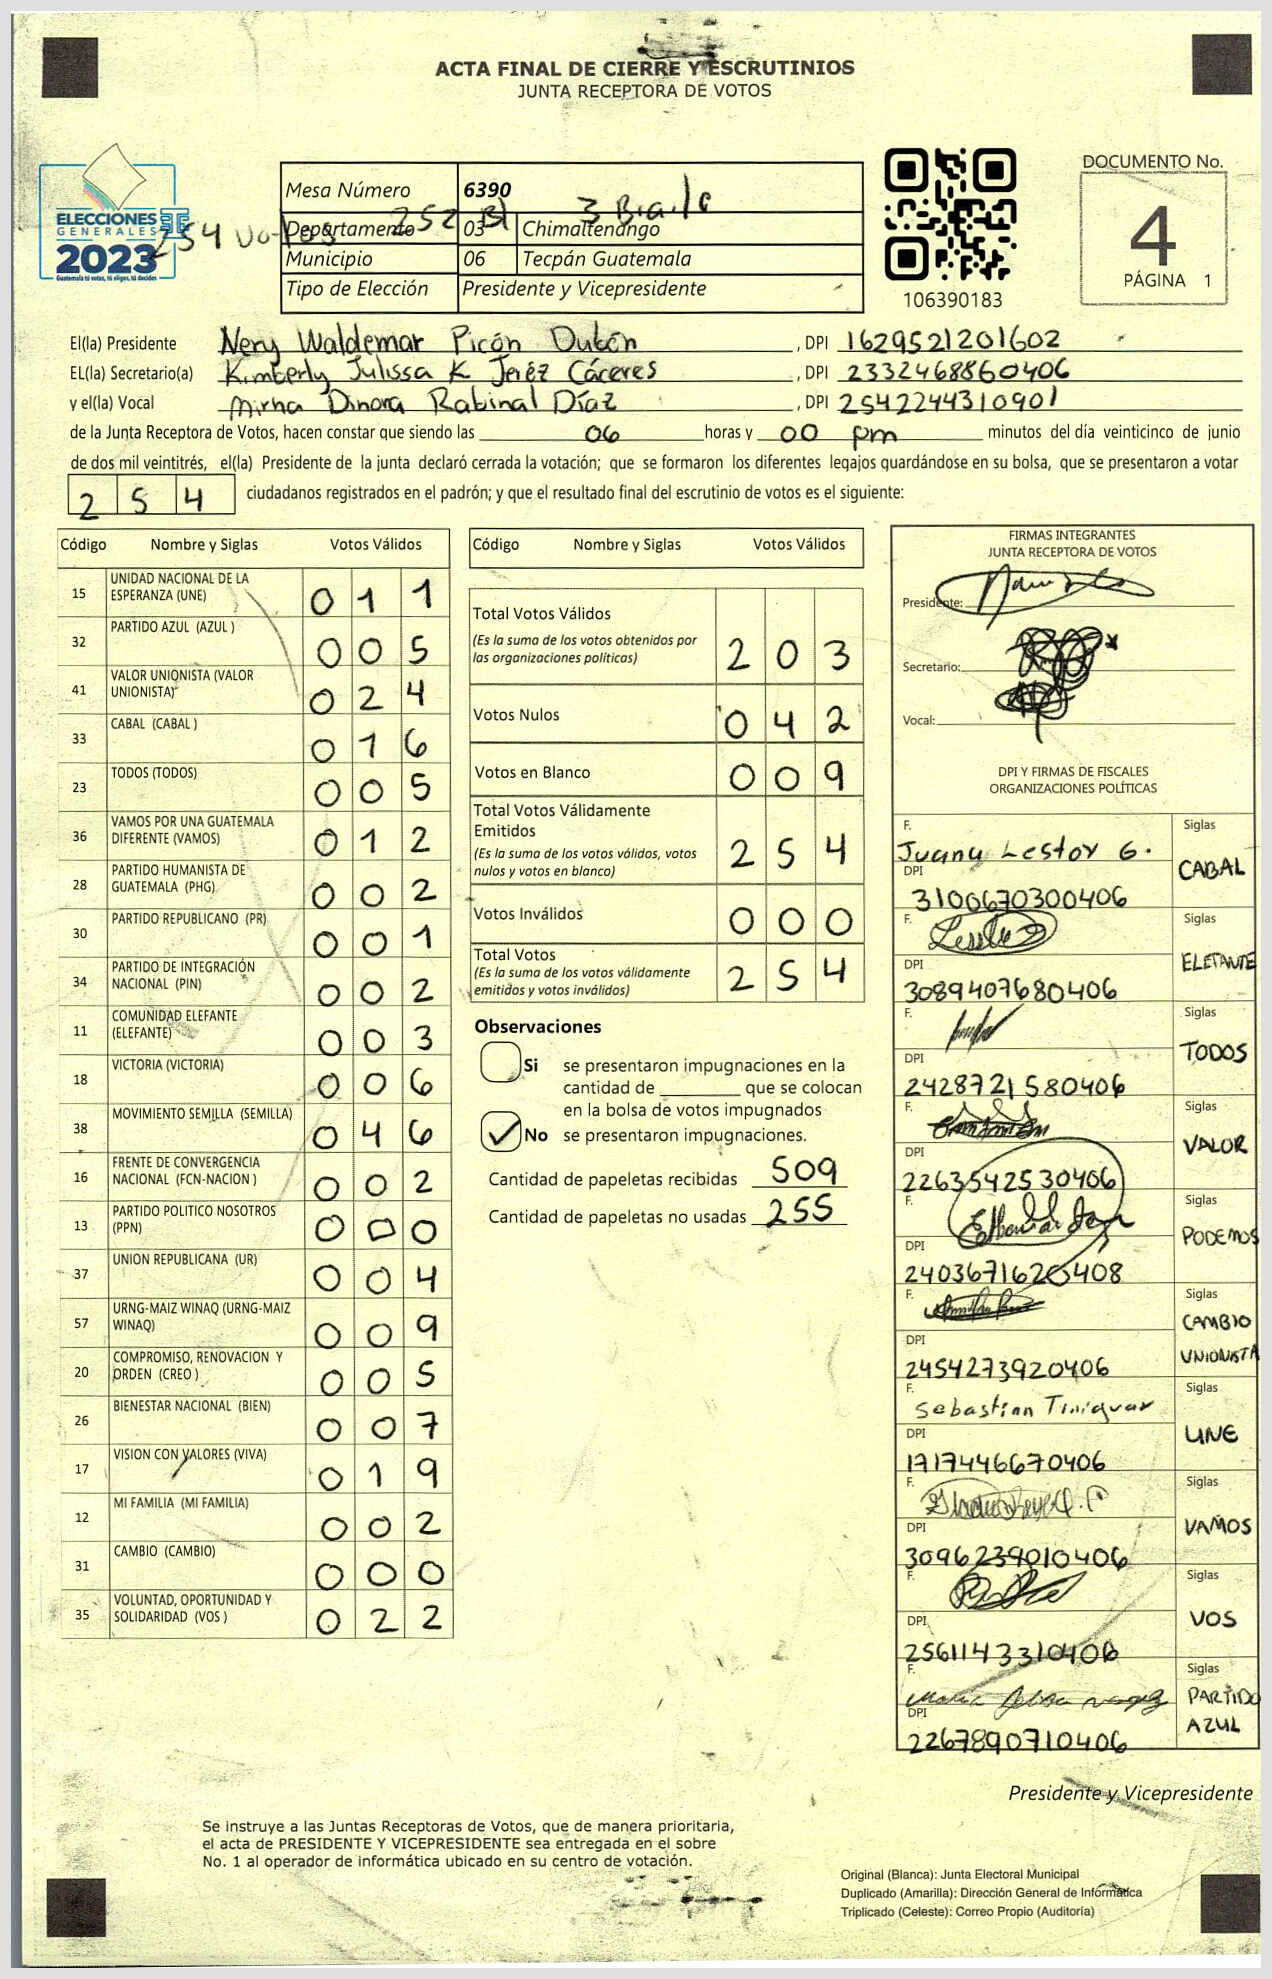 ACTA FINAL DE CIERRE Y ESCRUTINIOS
JUNTA RECEPTORA DE VOTOS
ELECCIONES
GENERALES
2023
Guatemala tú votas, tú eliges, tú decides
254 votos
Mesa Número 6390
252 Bl 3 Braile
Departamento 03 Chimaltenango
Municipio 06 Tecpán Guatemala
Tipo de Elección Presidente y Vicepresidente
106390183
DOCUMENTO No.
4
PÁGINA 1
El(la) Presidente Nery Waldemar Picón Dubón , DPI 1629521201602
EL(la) Secretario(a) Kimberly Julissa K Jeréz Cáceres , DPI 2332468860406
y el(la) Vocal Mirna Dinora Rabinal Díaz , DPI 2542244310901
de la Junta Receptora de Votos, hacen constar que siendo las 06 horas y 00 pm minutos del día veinticinco de junio
de dos mil veintitrés, el(la) Presidente de la junta declaró cerrada la votación; que se formaron los diferentes legajos guardándose en su bolsa, que se presentaron a votar
254 ciudadanos registrados en el padrón; y que el resultado final del escrutinio de votos es el siguiente:
Código Nombre y Siglas Votos Válidos
15 UNIDAD NACIONAL DE LA ESPERANZA (UNE) 011
32 PARTIDO AZUL (AZUL ) 005
41 VALOR UNIONISTA (VALOR UNIONISTA) 024
33 CABAL (CABAL ) 016
23 TODOS (TODOS) 005
36 VAMOS POR UNA GUATEMALA DIFERENTE (VAMOS) 012
28 PARTIDO HUMANISTA DE GUATEMALA (PHG) 002
30 PARTIDO REPUBLICANO (PR) 001
34 PARTIDO DE INTEGRACIÓN NACIONAL (PIN) 002
11 COMUNIDAD ELEFANTE (ELEFANTE) 003
18 VICTORIA (VICTORIA) 006
38 MOVIMIENTO SEMILLA (SEMILLA) 046
16 FRENTE DE CONVERGENCIA NACIONAL (FCN-NACION ) 002
13 PARTIDO POLITICO NOSOTROS (PPN) 000
37 UNION REPUBLICANA (UR) 004
57 URNG-MAIZ WINAQ (URNG-MAIZ WINAQ) 009
20 COMPROMISO, RENOVACION Y ORDEN (CREO ) 005
26 BIENESTAR NACIONAL (BIEN) 007
17 VISION CON VALORES (VIVA) 019
12 MI FAMILIA (MI FAMILIA) 002
31 CAMBIO (CAMBIO) 000
35 VOLUNTAD, OPORTUNIDAD Y SOLIDARIDAD (VOS ) 022
Código Nombre y Siglas Votos Válidos
Total Votos Válidos 203
(Es la suma de los votos obtenidos por
las organizaciones políticas)
Votos Nulos 042
Votos en Blanco 009
Total Votos Válidamente
Emitidos 254
(Es la suma de los votos válidos, votos
nulos y votos en blanco)
Votos Inválidos 000
Total Votos 254
(Es la suma de los votos válidamente
emitidos y votos inválidos)
Observaciones
Si se presentaron impugnaciones en la
cantidad de ________ que se colocan
en la bolsa de votos impugnados
No se presentaron impugnaciones.
Cantidad de papeletas recibidas 509
Cantidad de papeletas no usadas 255
FIRMAS INTEGRANTES
JUNTA RECEPTORA DE VOTOS
Presidente:
Secretario:
Vocal:
DPI Y FIRMAS DE FISCALES
ORGANIZACIONES POLÍTICAS
F. Juana Lestor G. Siglas
DPI 3100670300406 CABAL
F. Siglas
DPI 3089407680406 ELEFANTE
F. Siglas
DPI 2428721580406 TODOS
F. Siglas
DPI 2263542530406 VALOR
F. Siglas
DPI 2403671620408 PODEMOS
F. Siglas
CAMBIO
DPI 2454273920406 UNIONISTA
F. Sebastian Tiniguar Siglas
DPI 1717446670406 UNE
F. Siglas
DPI 3096239010406 VAMOS
F. Siglas
DPI 2561143310406 VOS
F. Siglas
DPI 2267890710406 PARTIDO AZUL
Presidente y Vicepresidente
Se instruye a las Juntas Receptoras de Votos, que de manera prioritaria,
el acta de PRESIDENTE Y VICEPRESIDENTE sea entregada en el sobre
No. 1 al operador de informática ubicado en su centro de votación.
Original (Blanca): Junta Electoral Municipal
Duplicado (Amarilla): Dirección General de Informática
Triplicado (Celeste): Correo Propio (Auditoría)